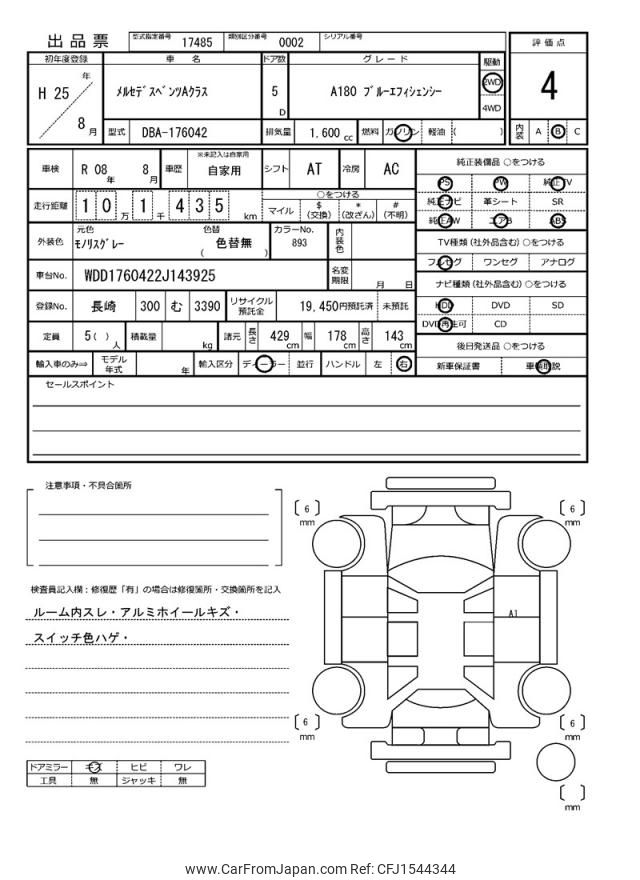 出品票 型式指定番号 17485 類別区分番号 0002 シリアル番号
評価点
初年度登録 車名 ドア数 グレード 駆動
H 25 年 8 月 メルセデスベンツAクラス 5 D A180 ブルーエフィシェンシー 2WD 4WD
4
型式 DBA-176042 排気量 1,600 cc 燃料 ガソリン 軽油 ( ) 内装 A B C
車検 R 08 年 8 月 車歴 ※未記入は自家用 自家用 シフト AT 冷房 AC
純正装備品 ○をつける
PS PW 純正TV
走行距離 1 0 万 1 千 4 3 5 km ○をつける
マイル $ (交換) * (改ざん) # (不明)
純正ナビ 革シート SR
純正AW エアB ABS
外装色 元色 モノリスグレー 色替 ( 色替無 ) カラーNo. 893 内装色
TV種類 (社外品含む) ○をつける
フルセグ ワンセグ アナログ
車台No. WDD1760422J143925 名変期限 月 日
ナビ種類 (社外品含む) ○をつける
HDD DVD SD
登録No. 長崎 300 む 3390 リサイクル預託金 19,450円預託済 未預託
DVD再生可 CD
定員 5 ( ) 人 積載量 kg 諸元 長さ 429 cm 幅 178 cm 高さ 143 cm
後日発送品 ○をつける
輸入車のみ⇒ モデル年式 年 輸入区分 ディーラー 並行 ハンドル 左 右
新車保証書 車輌取説
セールスポイント
注意事項・不具合箇所
検査員記入欄：修復歴「有」の場合は修復箇所・交換箇所を記入
ルーム内スレ・アルミホイールキズ・
スイッチ色ハゲ・
ドアミラー キズ ヒビ ワレ
工具 無 ジャッキ 無
〔 6 〕 mm
〔 6 〕 mm
A1
〔 6 〕 mm
〔 6 〕 mm
〔 〕 mm
www.CarFromJapan.com Ref: CFJ1544344